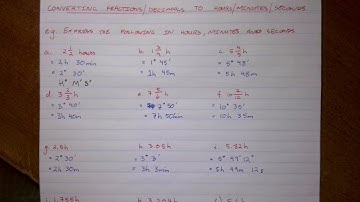 CONVERTING FRACTIONS/DECIMALS TO HOURS/MINUTES/SECONDS.
e.g. EXPRESS THE FOLLOWING IN HOURS, MINUTES AND SECONDS
a. 2 1/2 hours b. 1 3/4 h c. 5 4/5 h
= 2h 30min = 1° 45' = 5° 48'
= 2° 30' = 1h 45m = 5h 48m
H° M' S"
d. 3 2/3 h e. 7 5/6 h f. 10 7/12 h
= 3° 40' = 7° 50' = 10° 35'
= 3h 40m = 7h 50min = 10h 35m
g. 2.5h h. 3.05h i. 5.82h
= 2° 30' = 3° 3' = 5° 49' 12"
= 2h 30m = 3h 3min = 5h 49m 12s
j. 1.755h k. 3.204h